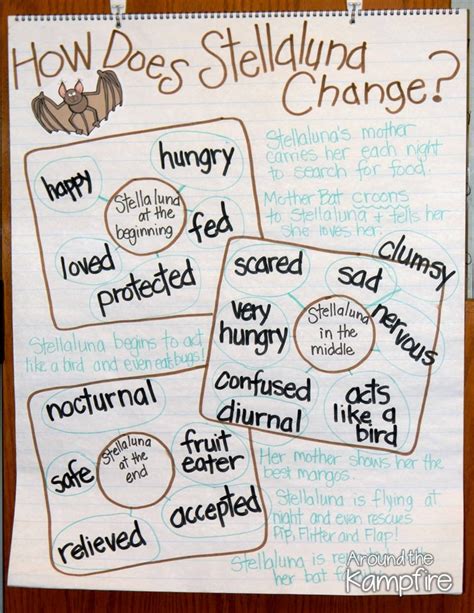 How Does Stellaluna
Change?
happy
hungry
Stellaluna
at the
beginning
fed
loved
protected
Stellaluna's mother
carries her each night
to search for food.
Mother Bat croons
to Stellaluna + tells her
she loves her.
scared
sad
clumsy
very
hungry
Stellaluna
in the
middle
nervous
confused
diurnal
acts
like a
bird
Stellaluna begins to act
like a bird and even eats bugs!
nocturnal
safe
Stellaluna
at the
end
fruit
eater
accepted
relieved
Her mother shows her the
best mangos.
Stellaluna is flying at
night and even rescues
Pip, Flitter and Flap!
Stellaluna is
her bat
Around the
Kampfire